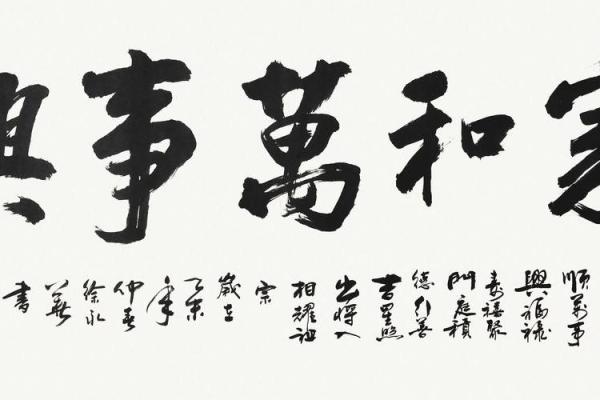 家和萬事興
順萬事
興福祿
壽禧聚
門庭積
德行善
吉星照
出將入
相耀祖
宗
歲在
乙未
年
仲春
徐永
書